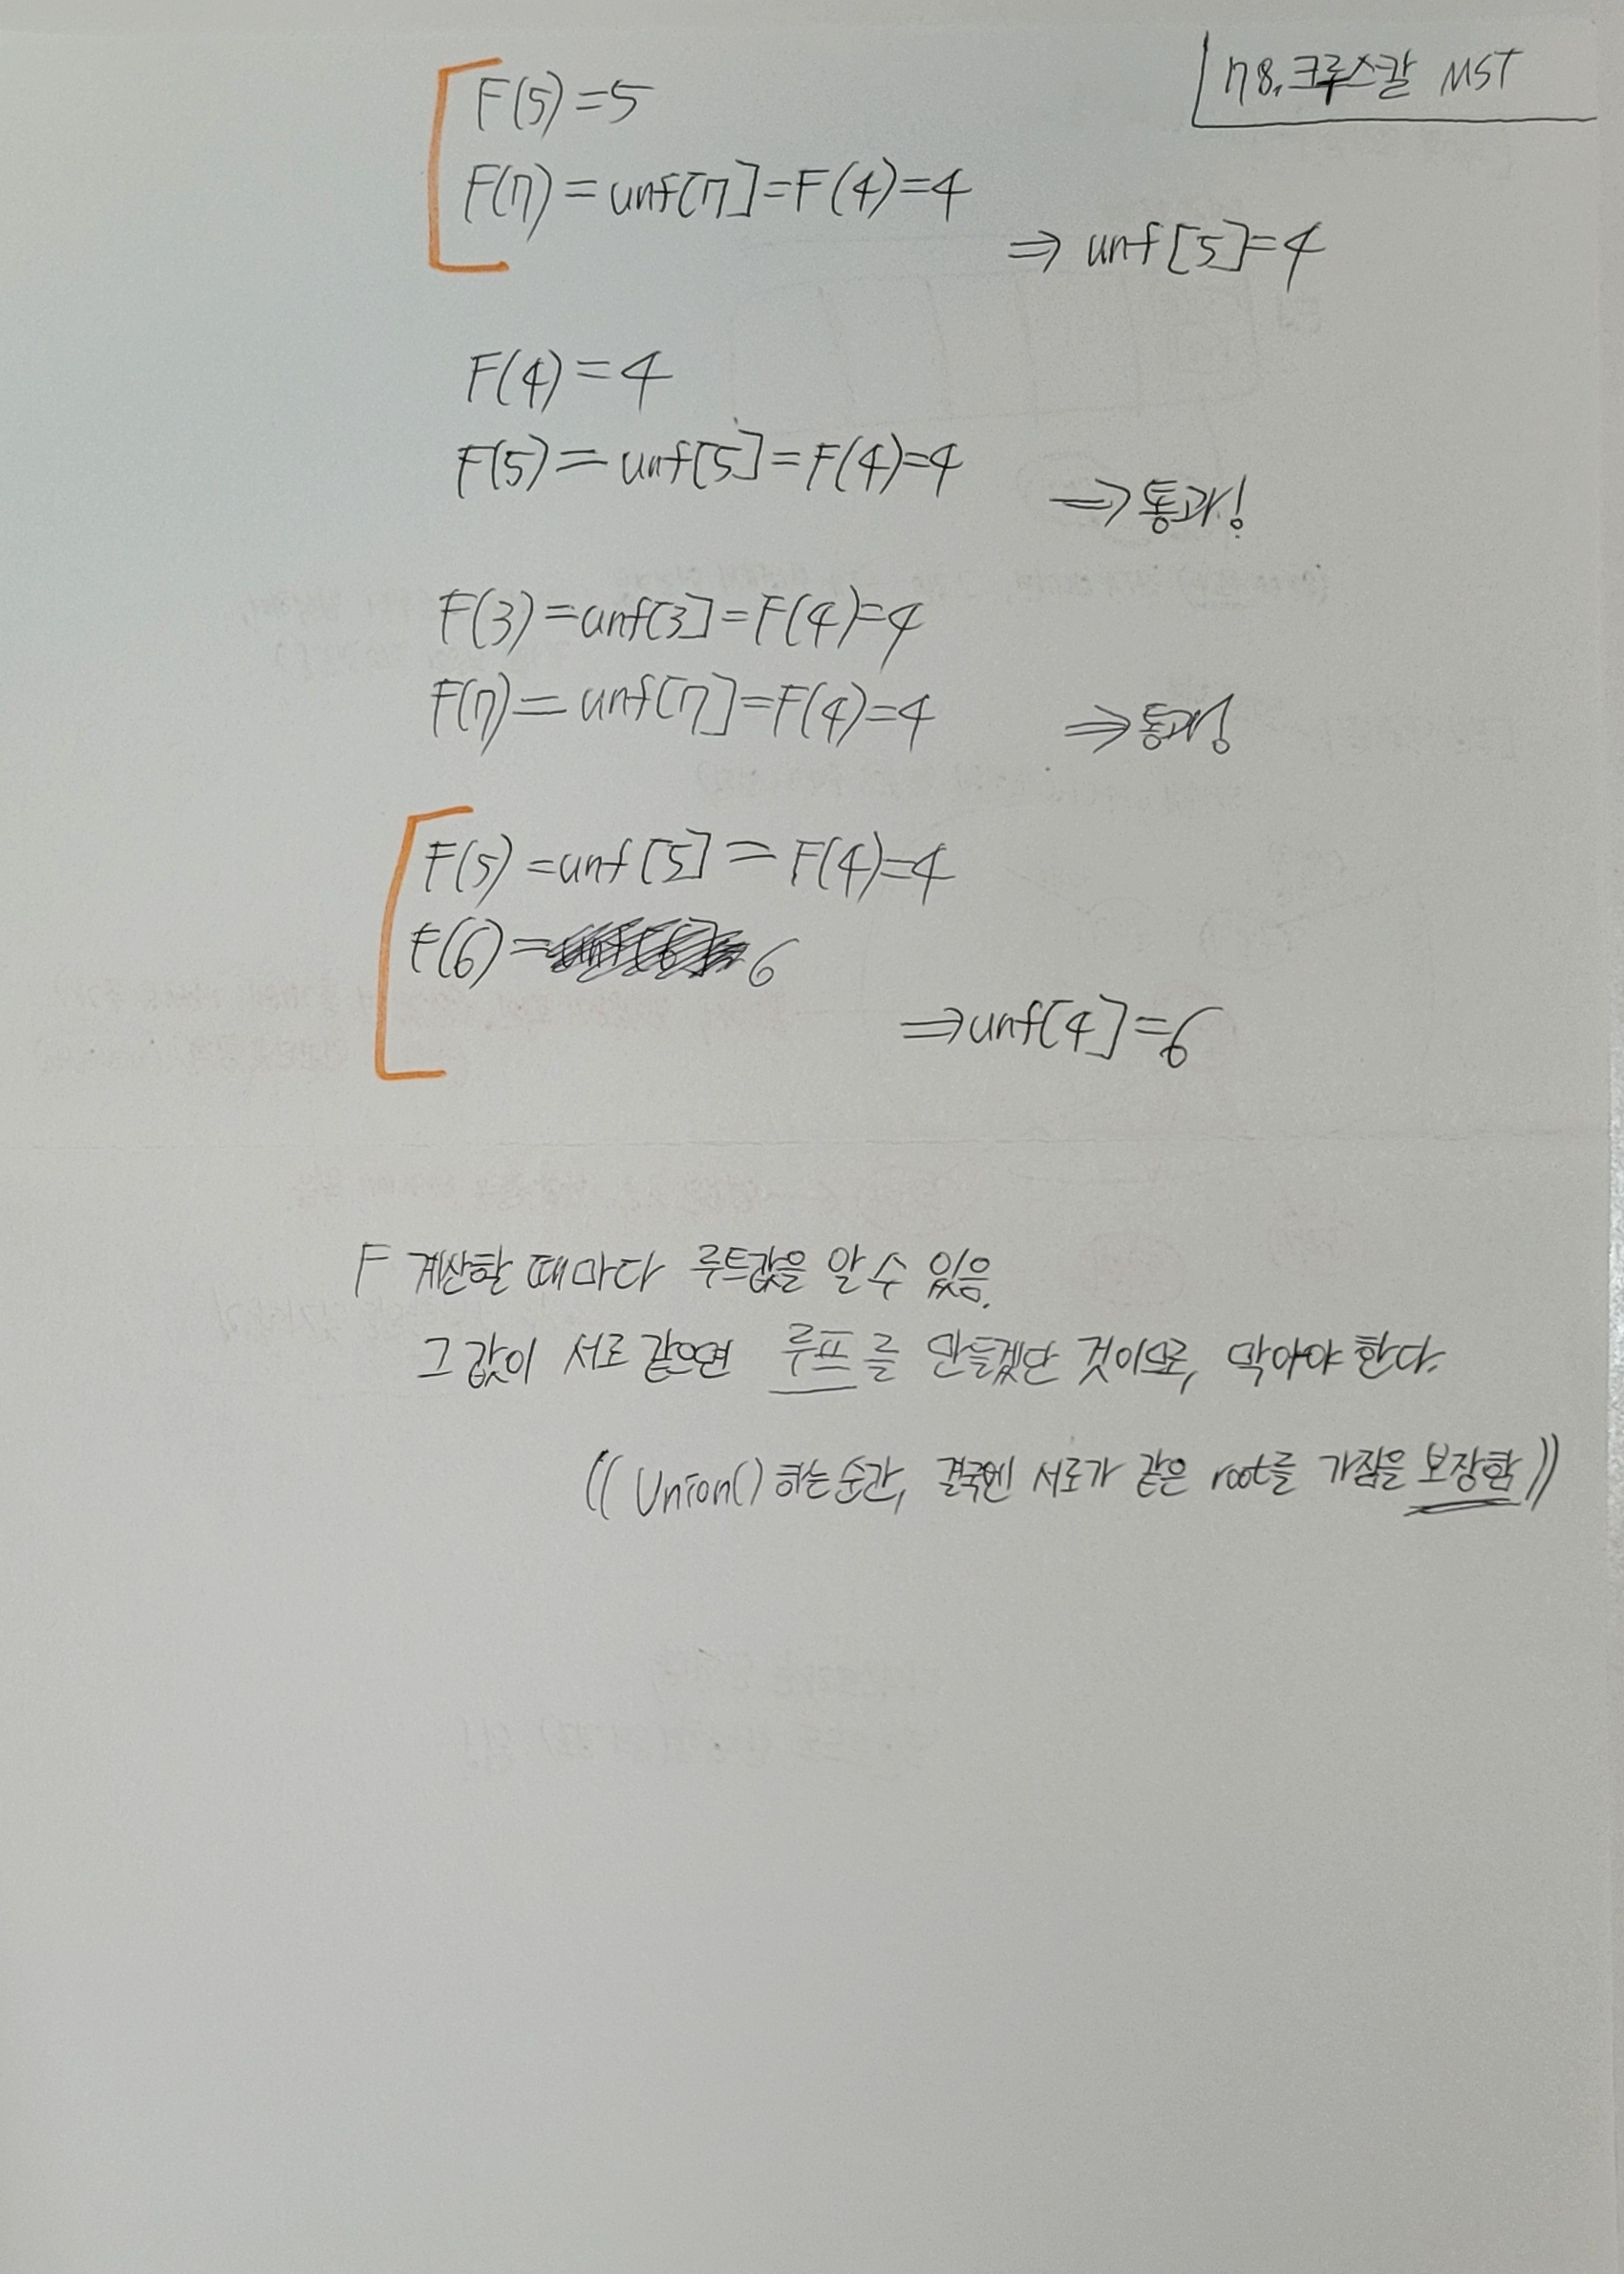 78. 크루스칼 MST
F(5)=5
F(7)=unf[7]=F(4)=4
⇒ unf[5]=4
F(4)=4
F(5)=unf[5]=F(4)=4
⇒통과!
F(3)=unf[3]=F(4)=4
F(7)=unf[7]=F(4)=4
⇒통과!
F(5)=unf[5]=F(4)=4
F(6)= 6
⇒unf[4]=6
F 계산할 때마다 루트값을 알 수 있음.
그 값이 서로 같으면 루프를 만들겠단 것이므로, 막아야 한다.
(( Union() 하는 순간, 결국엔 서로가 같은 root를 가짐을 보장함 ))